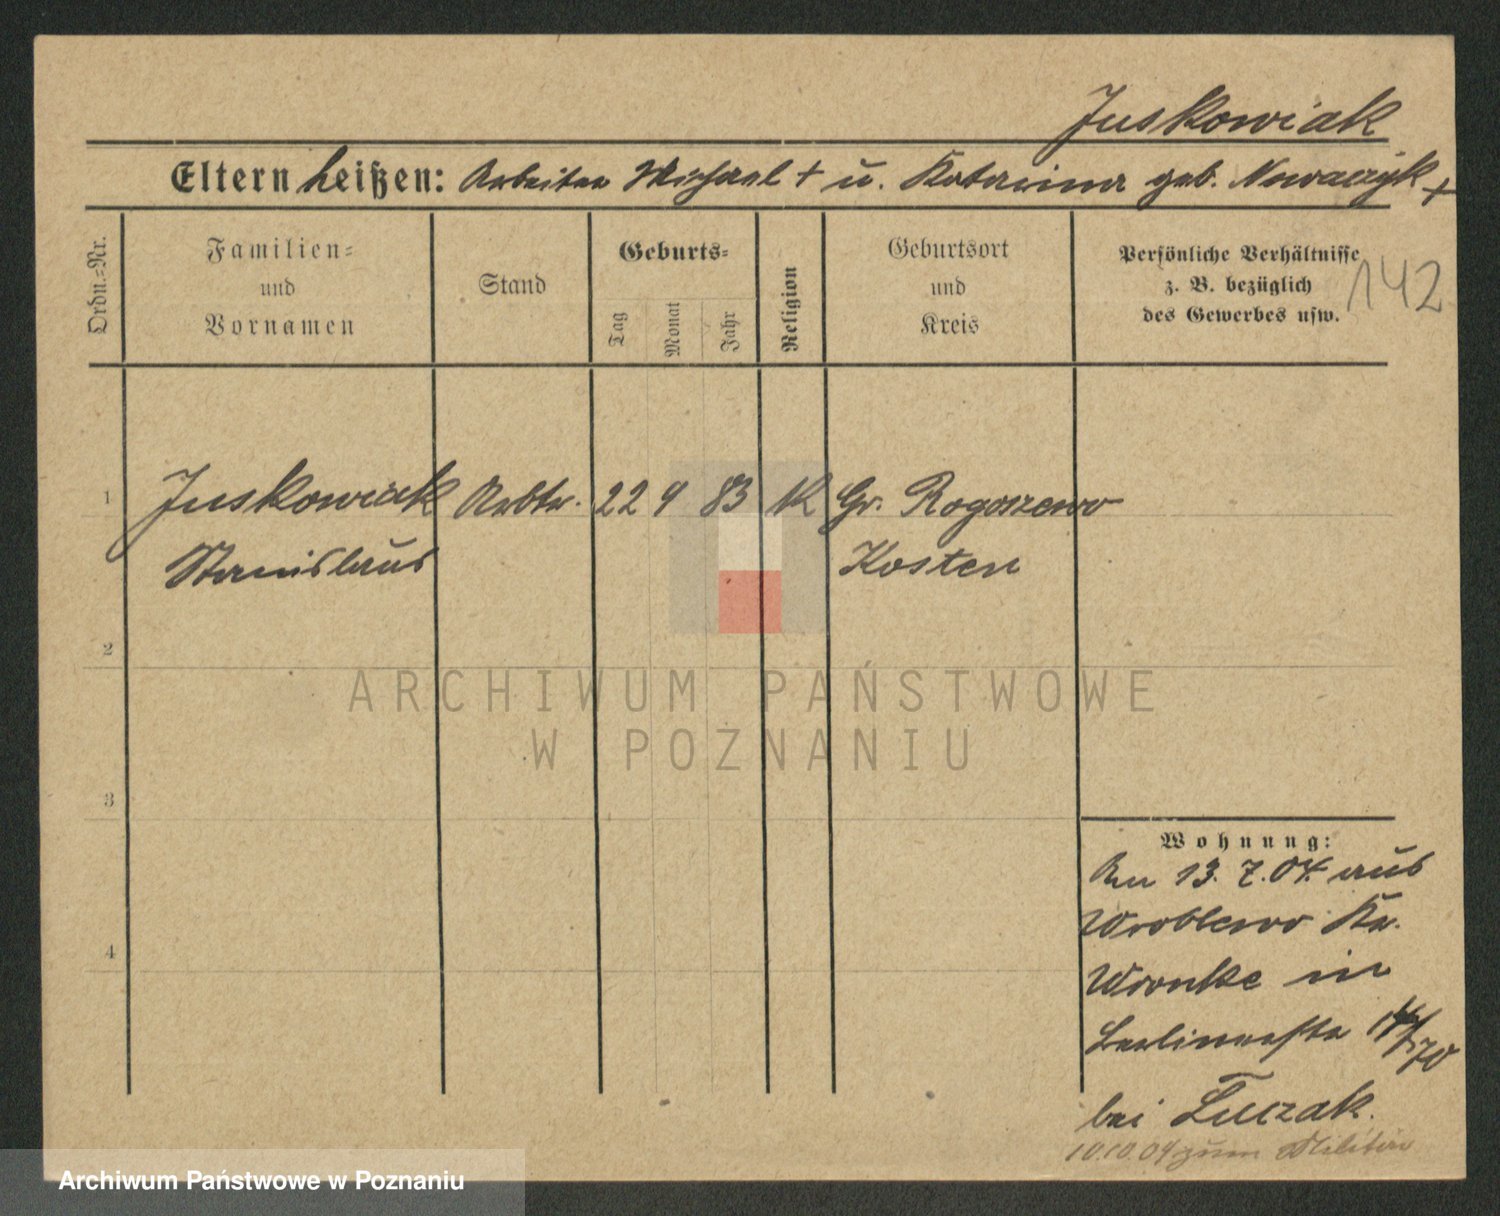 Juskowiak
Eltern heißen: Arbeiter Michael + u. Katarina geb. Nowaczyk +
Ordn.-Nr.
Familien=
und
Vornamen
Stand
Geburts=
Tag
Monat
Jahr
Religion
Geburtsort
und
Kreis
Persönliche Verhältnisse
z. B. bezüglich
des Gewerbes usw.
142
1 Juskowiak Arbtr. 22 9 83 K Gr. Rogoszewo
Stanislaus Kosten
2
3
4
ARCHIWUM PAŃSTWOWE
W POZNANIU
Wohnung:
Am 13.7.04. aus
Wroblewo Kr.
Wronke in
Berlinerstr
bei Luczak.
10.10.04 zum Militär
Archiwum Państwowe w Poznaniu